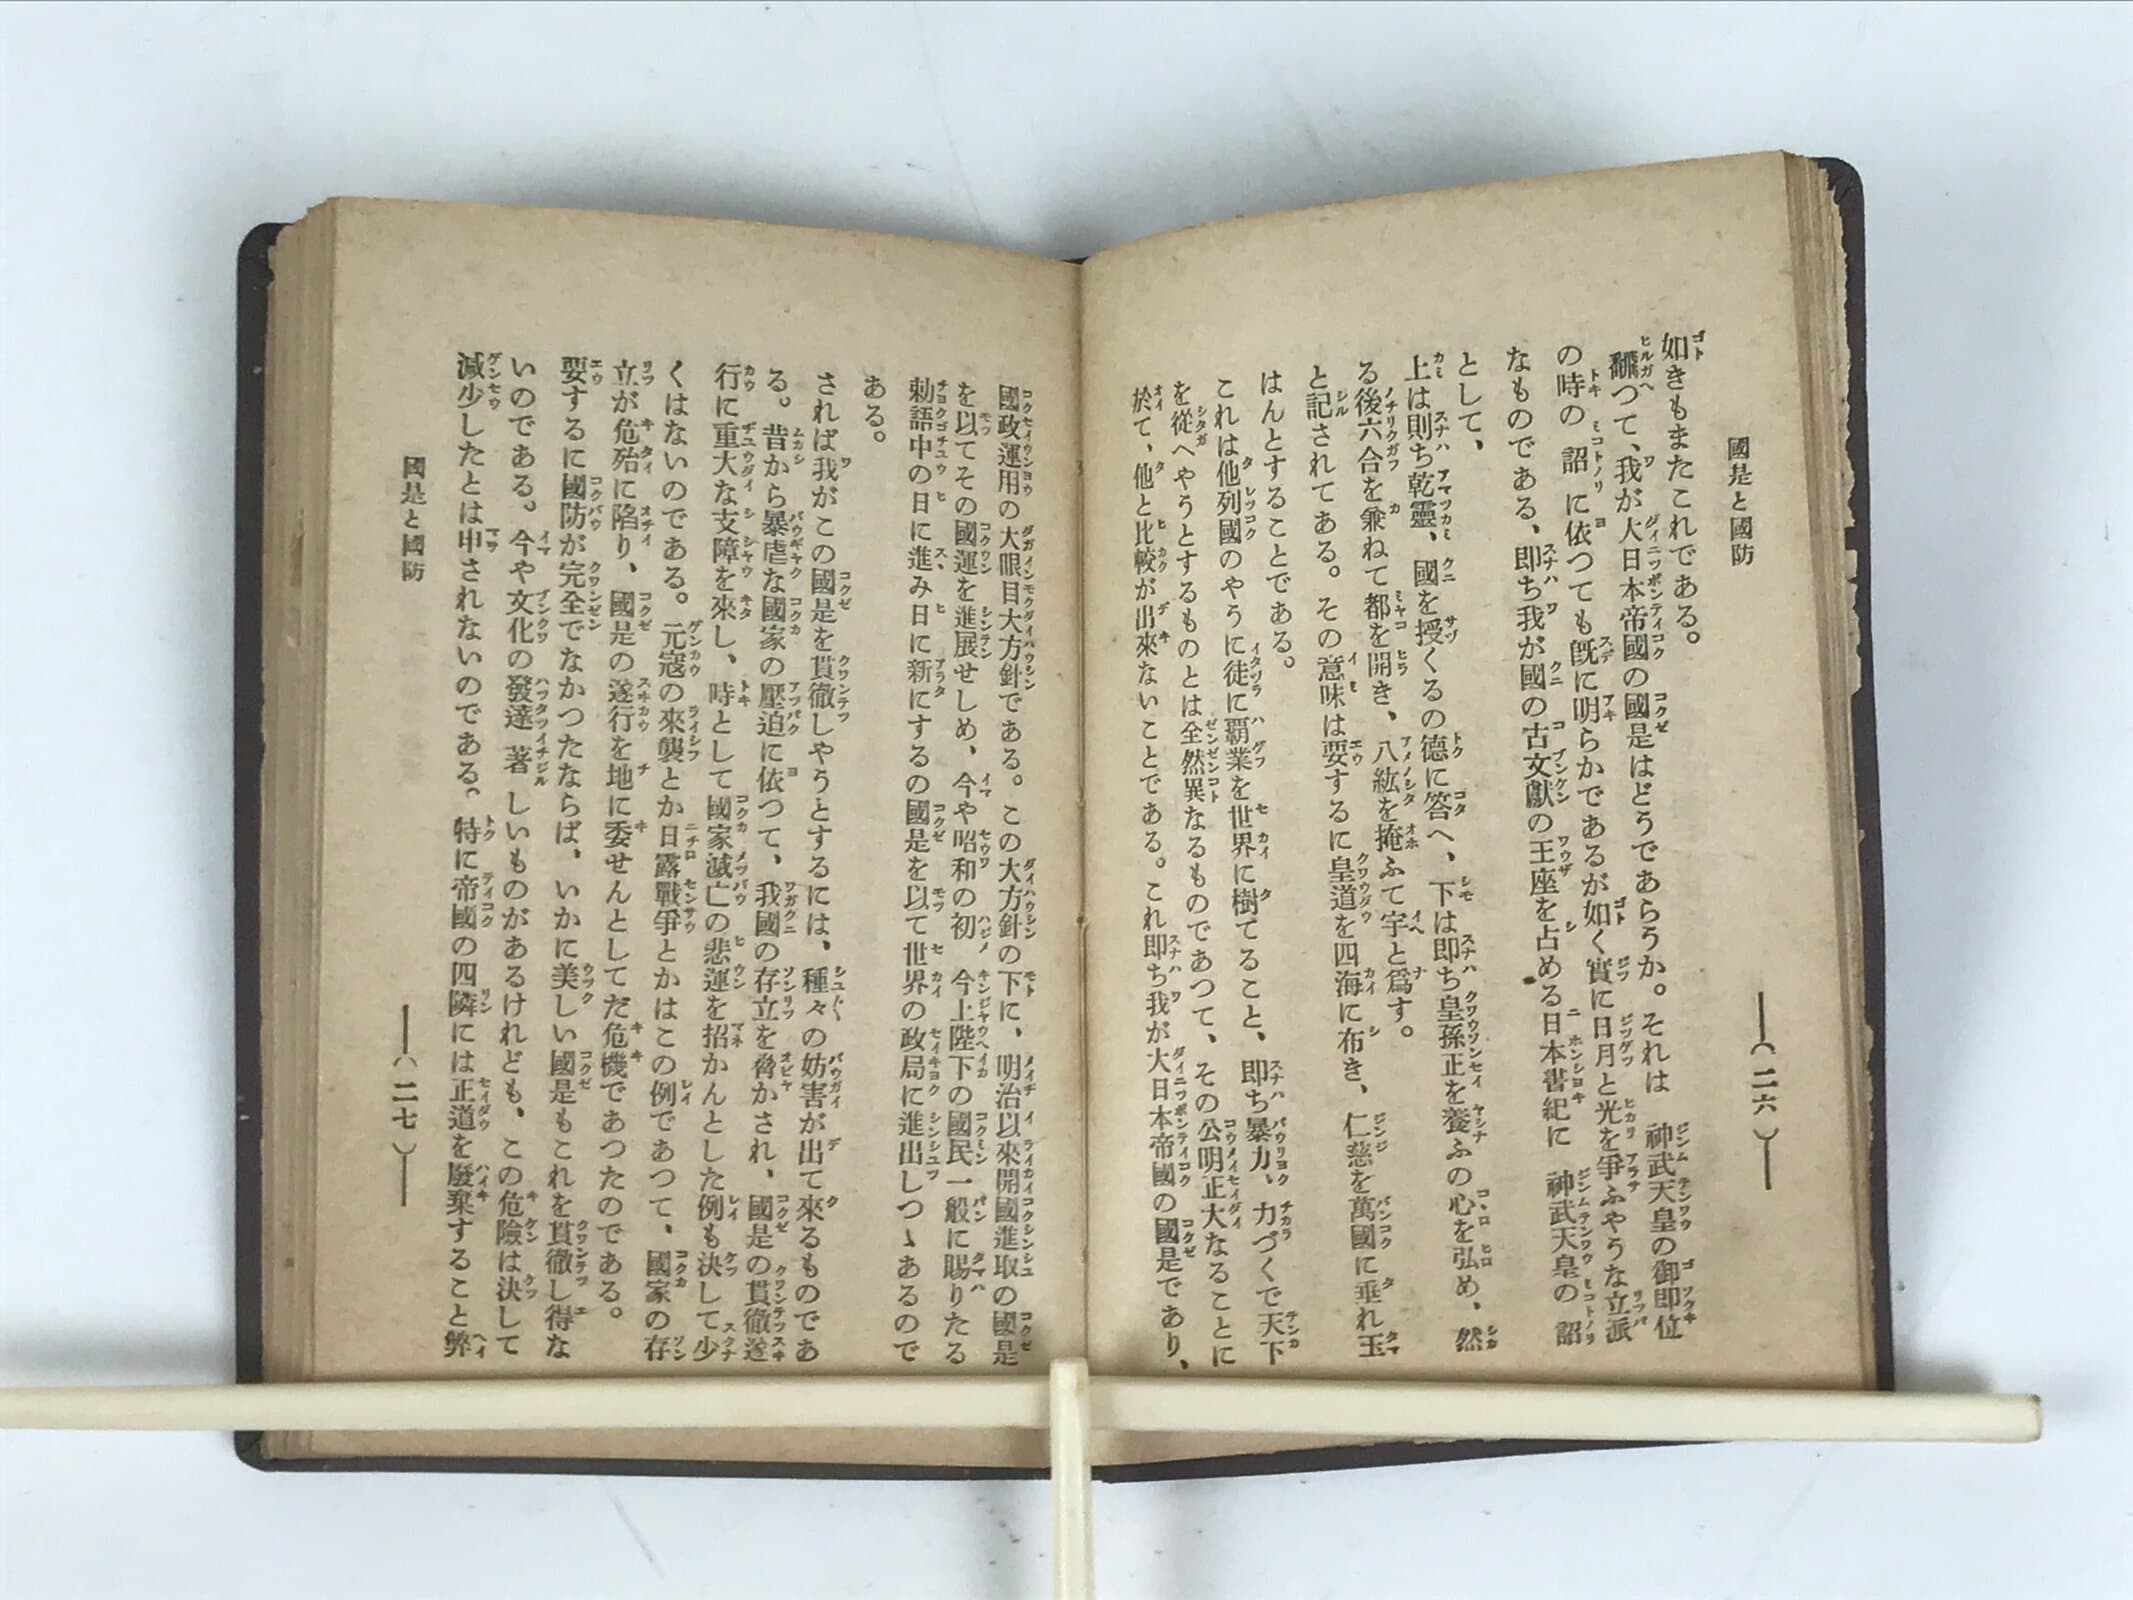 國是と國防
(二六)
如きもまたこれである。
飜つて、我が大日本帝國の國是はどうであらうか。それは 神武天皇の御即位
の時の 詔 に依つても既に明らかであるが如く實に日月と光を爭ふやうな立派
なものである、即ち我が國の古文獻の王座を占める日本書紀に 神武天皇の 詔
として、
上は則ち乾靈、國を授くるの德に答へ、下は即ち皇孫正を養ふの心を弘め、然
る後六合を兼ねて都を開き、八紘を掩ふて宇と爲す。
と記されてある。その意味は要するに皇道を四海に布き、仁慈を萬國に垂れ玉
はんとすることである。
これは他列國のやうに徒に覇業を世界に樹てること、即ち暴力、力づくで天下
を從へやうとするものとは全然異なるものであつて、その公明正大なることに
於て、他と比較が出來ないことである。これ即ち我が大日本帝國の國是であり、
國政運用の大眼目大方針である。この大方針の下に、明治以來開國進取の國是
を以てその國運を進展せしめ、今や昭和の初 今上陛下の國民一般に賜りたる
勅語中の日に進み日に新にするの國是を以て世界の政局に進出しつゝあるので
ある。
されば我がこの國是を貫徹しやうとするには、種々の妨害が出て來るものであ
る。昔から暴虐な國家の壓迫に依つて、我國の存立を脅かされ、國是の貫徹遂
行に重大な支障を來し、時として國家滅亡の悲運を招かんとした例も決して少
くはないのである。元寇の來襲とか日露戰爭とかはこの例であつて、國家の存
立が危殆に陷り、國是の遂行を地に委せんとしてだ危機であつたのである。
要するに國防が完全でなかつたならば、いかに美しい國是もこれを貫徹し得な
いのである。今や文化の發達 著 しいものがあるけれども、この危險は決して
減少したとは申されないのである。特に帝國の四隣には正道を廢棄すること弊
國是と國防
(二七)